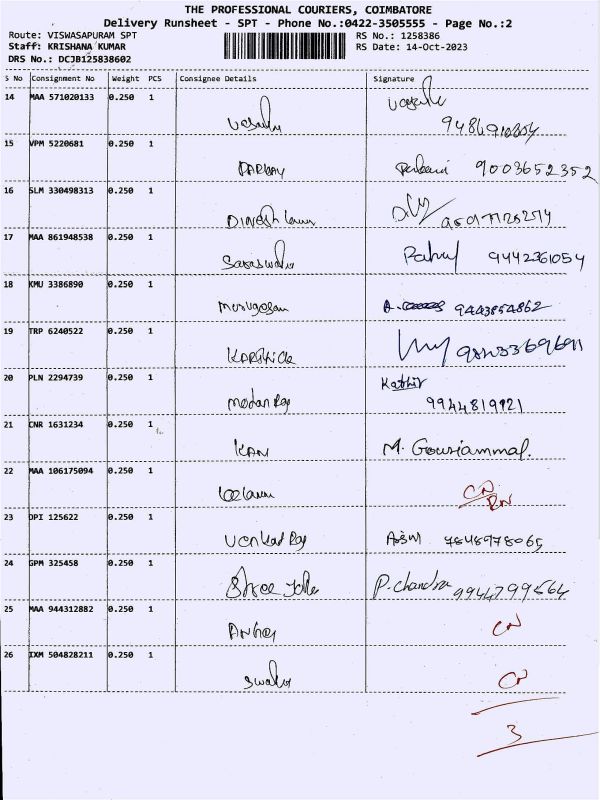 THE PROFESSIONAL COURIERS, COIMBATORE
Delivery Runsheet - SPT - Phone No.:0422-3505555 - Page No.:2
Route: VISWASAPURAM SPT RS No.: 1258386
Staff: KRISHANA KUMAR RS Date: 14-Oct-2023
DRS No.: DCJB125838602
S No Consignment No Weight PCS Consignee Details Signature
14 MAA 571020133 0.250 1
15 VPM 5220681 0.250 1
9003652352
16 SLM 330498313 0.250 1
Dinesh
17 MAA 861948538 0.250 1
Rahul 9442361054
18 KMU 3386890 0.250 1
Murugesan 9443854862
19 TRP 6240522 0.250 1
20 PLN 2294739 0.250 1
Kathir
Madan Raj 9944819121
21 CNR 1631234 0.250 1
KAN M. Gouriammal.
22 MAA 106175094 0.250 1
CN
RN
23 DPI 125622 0.250 1
Venkat Raj 7848978065
24 GPM 325458 0.250 1
Shree P. Chandra 9944799564
25 MAA 944312882 0.250 1
CN
26 IXM 504828211 0.250 1
CN
3